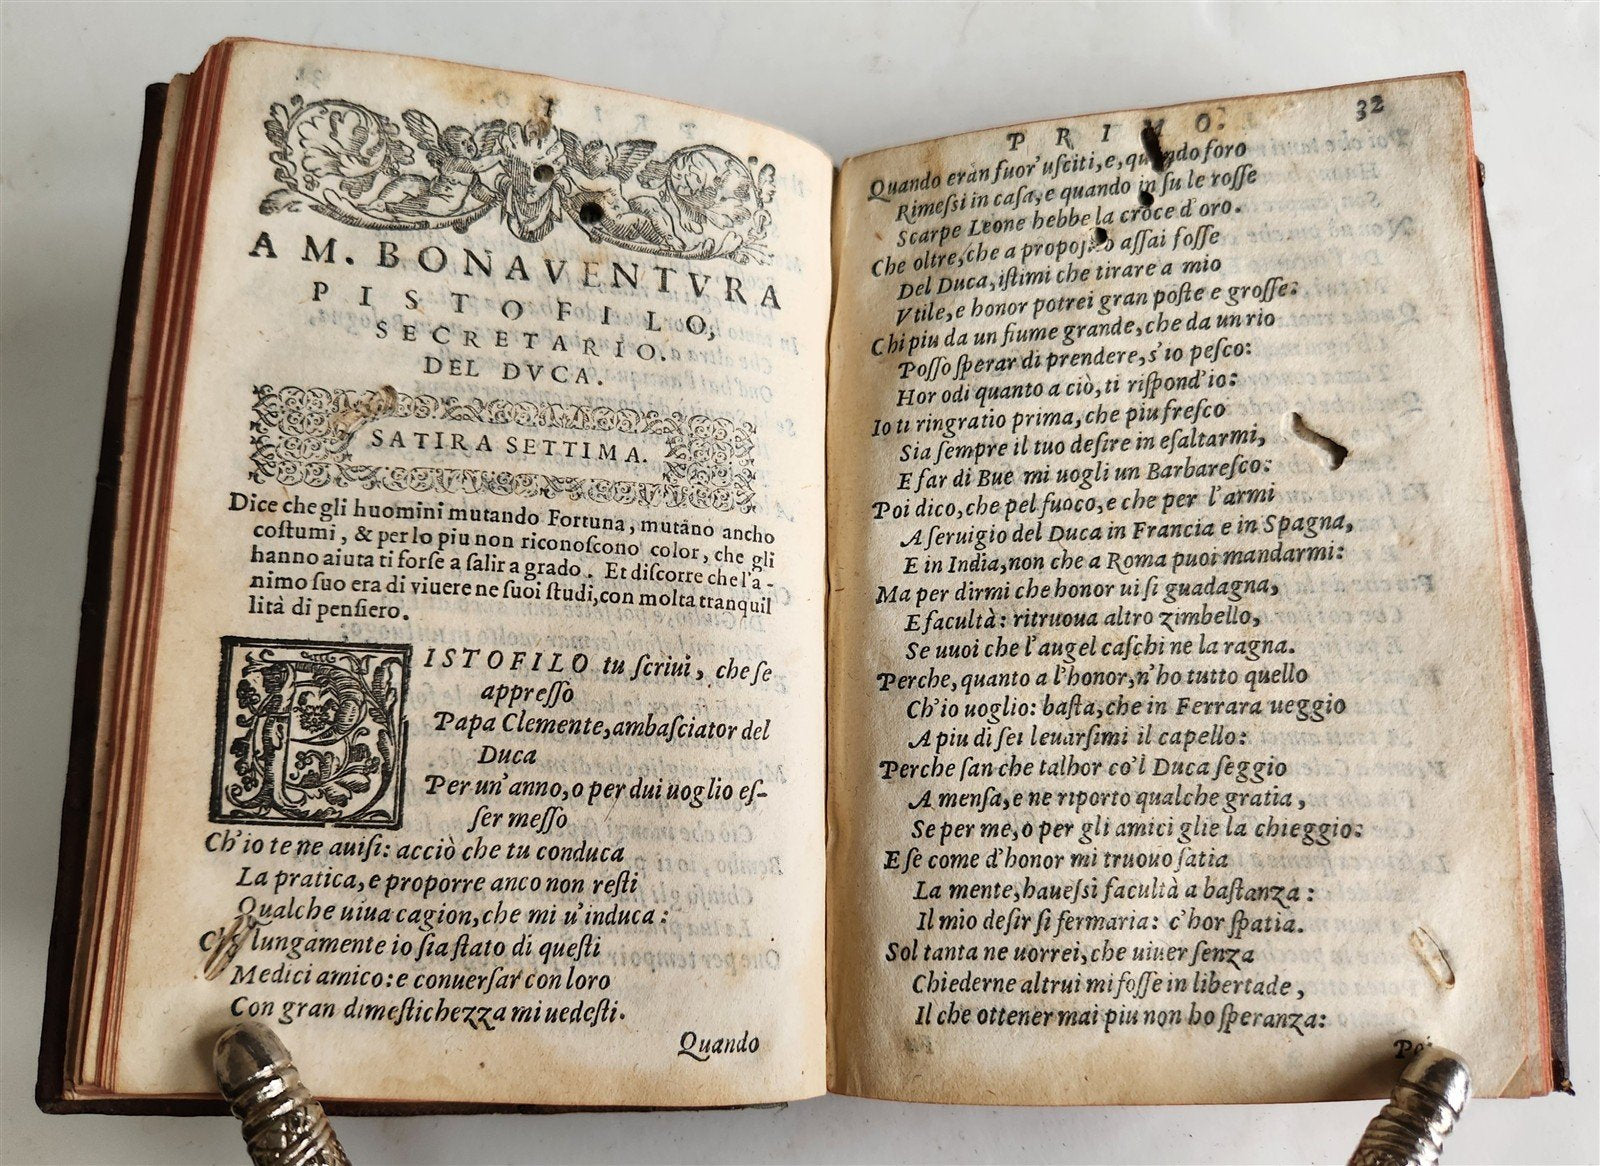 A M. BONAVENTVRA
PISTOFILO,
SECRETARIO.
DEL DVCA.
SATIRA SETTIMA.
Dice che gli huomini mutando Fortuna, mutano ancho
coſtumi, & per lo piu non riconoſcono color, che gli
hanno aiuta ti forſe a ſalir a grado. Et diſcorre che l'a-
nimo ſuo era di viuere ne ſuoi ſtudi, con molta tranquil
lità di penſiero.
PISTOFILO tu ſcriui, che ſe
appreſſo
Papa Clemente, ambaſciator del
Duca
Per un'anno, o per dui uoglio eſ-
ſer meſſo
Ch'io te ne auiſi: acciò che tu conduca
La pratica, e proporre anco non reſti
Qualche uiua cagion, che mi u'induca:
lungamente io ſia ſtato di queſti
Medici amico: e conuerſar con loro
Con gran dimeſtichezza mi uedeſti.
Quando
PRIMO. 32
Quando eran fuor'uſciti, e, quando foro
Rimeſsi in caſa, e quando in ſu le roſſe
Scarpe Leone hebbe la croce d'oro.
Che oltre, che a propoſito aſſai foſſe
Del Duca, iſtimi che tirare a mio
Vtile, e honor potrei gran poſte e groſſe:
Chi piu da un fiume grande, che da un rio
Poſſo ſperar di prendere, s'io peſco:
Hor odi quanto a ciò, ti riſpond'io:
Io ti ringratio prima, che piu freſco
Sia ſempre il tuo deſire in eſaltarmi,
E far di Bue mi uogli un Barbareſco:
Poi dico, che pel fuoco, e che per l'armi
A ſeruigio del Duca in Francia e in Spagna,
E in India, non che a Roma puoi mandarmi:
Ma per dirmi che honor ui ſi guadagna,
E facultà: ritruoua altro zimbello,
Se uuoi che l'augel caſchi ne la ragna.
Perche, quanto a l'honor, n'ho tutto quello
Ch'io uoglio: baſta, che in Ferrara ueggio
A piu di ſei leuarſimi il capello:
Perche ſan che talhor co'l Duca ſeggio
A menſa, e ne riporto qualche gratia,
Se per me, o per gli amici glie la chieggio:
E ſe come d'honor mi truouo ſatia
La mente, haueſsi facultà a baſtanza:
Il mio deſir ſi fermaria: c'hor ſpatia.
Sol tanta ne uorrei, che uiuer ſenza
Chiederne altrui mi foſſe in libertade,
Il che ottener mai piu non ho ſperanza: